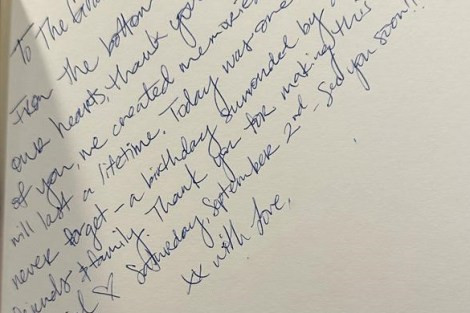 To The
From the bottom
our hearts, thank you
of you, we created memories
will last a lifetime. Today was one
never forget - a birthday surrounded by
friends & family. Thank you for making this
♡ Saturday, September 2nd - See you soon!!
xx with love,